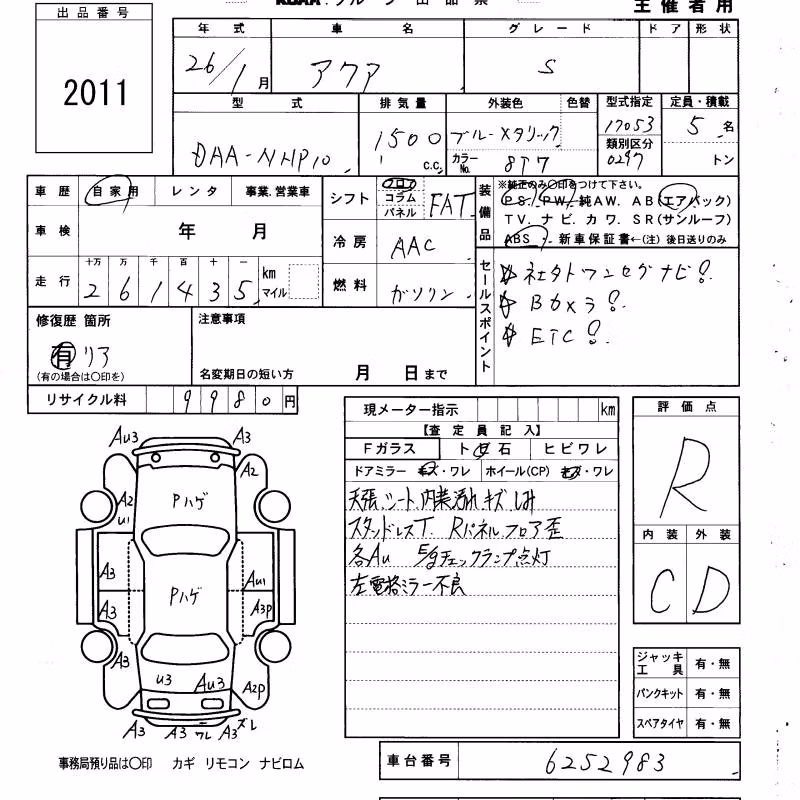 出品番号
2011
主催者用
年式 車名 グレード ドア 形状
26/1月 アクア S
型式 排気量 外装色 色替 型式指定 定員・積載
DAA-NHP10 1500 c.c. ブルーメタリック 17053 5名
カラーNo. 8T7 類別区分 0297 トン
車歴 自家用 レンタ 事業.営業車
シフト フロア コラム パネル FAT
装備品
※純正のみ〇印をつけて下さい。
PS. PW. 純AW. AB(エアバック)
TV. ナビ. カワ. SR(サンルーフ)
ABS 新車保証書←(注) 後日送りのみ
車検 年 月
冷房 AAC
走行 十万 万 千 百 十 一
261435 km マイル
燃料 ガソリン
セールスポイント
社外ワンセグナビ!
Bカメラ!
ETC!
修復歴 箇所
有 リア
(有の場合は〇印を)
注意事項
名変期日の短い方 月 日まで
リサイクル料 9980円
現メーター指示 km
【査定員記入】
Fガラス トビ石 ヒビワレ
ドアミラー キズ・ワレ ホイール(CP) キズ・ワレ
天張、シート、内装汚れ キズ しみ
Rパネル、フロア歪
各Au 5gチェックランプ点灯
左電格ミラー不良
評価点
R
内装 外装
C D
Au3 A3
A2
A2
U1
Pハゲ
A3
AU1
A3
Pハゲ
A3P
A3 A3
U3 AU3 A2P
A3 A3 ワレ A3 ズレ
ジャッキ工具 有・無
パンクキット 有・無
スペアタイヤ 有・無
事務局預り品は〇印 カギ リモコン ナビロム
車台番号 6252983